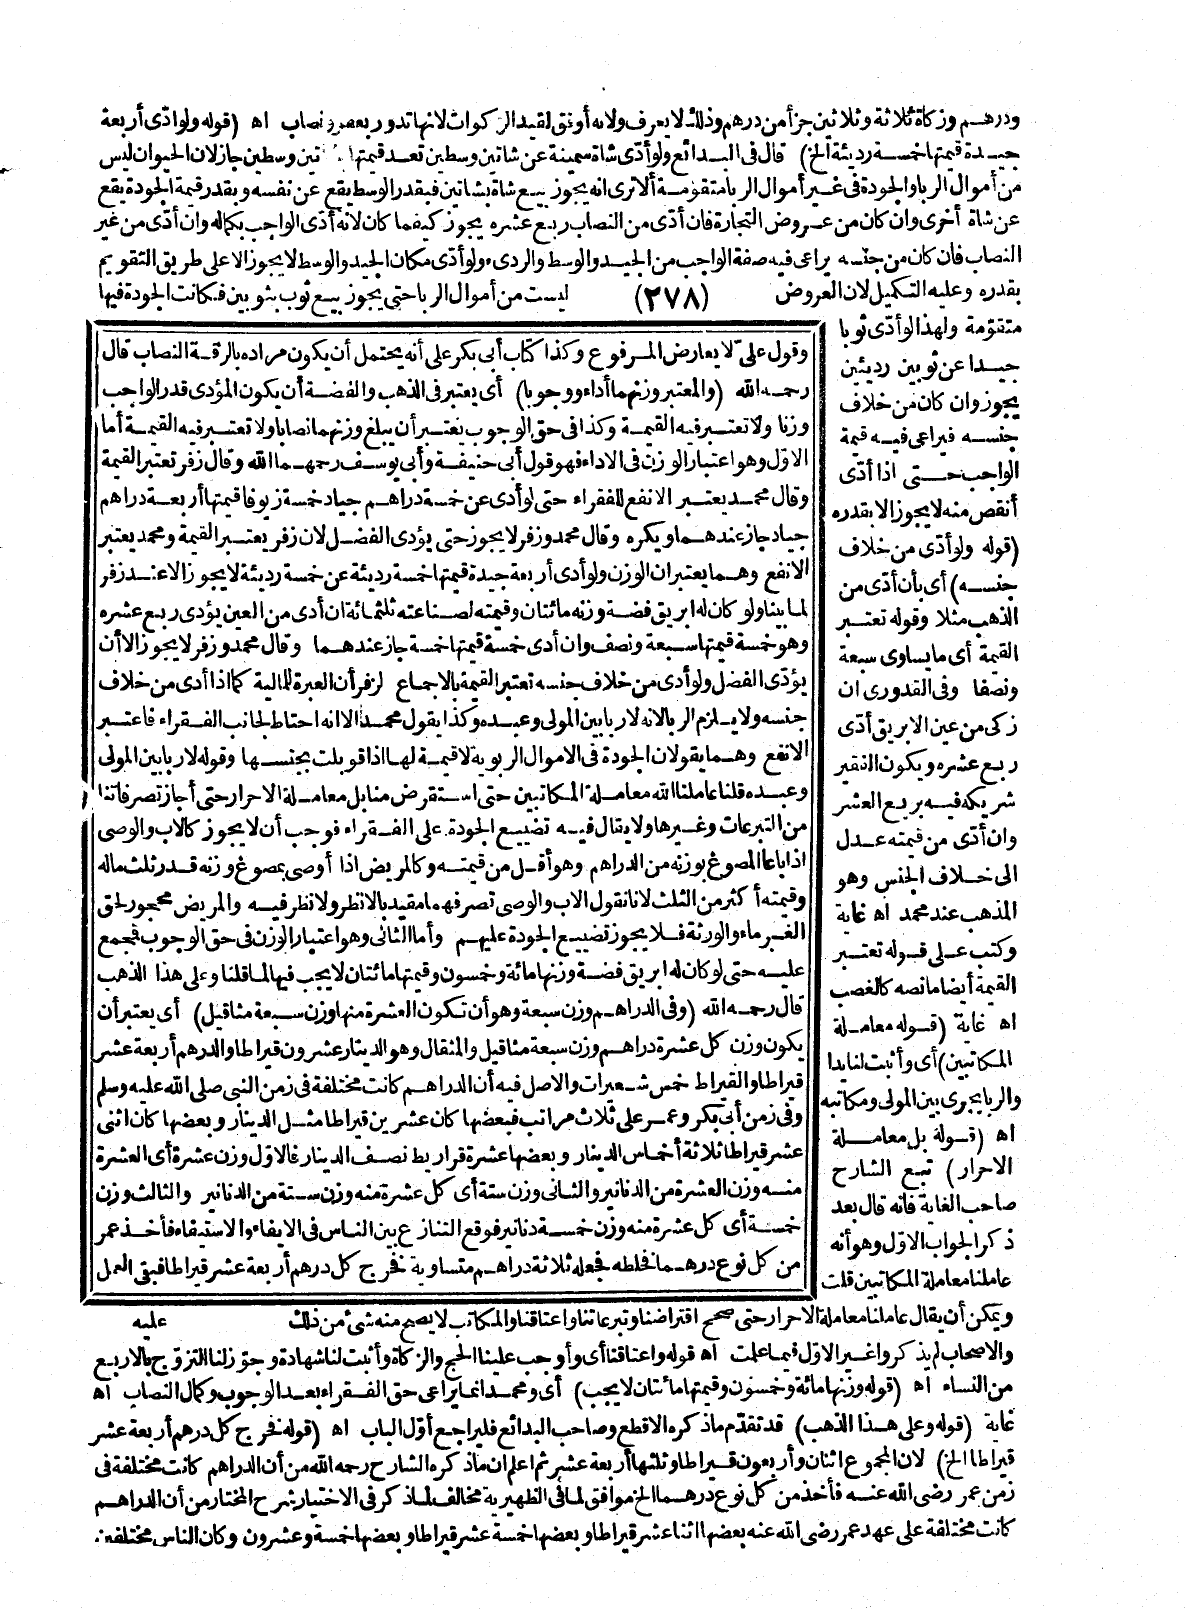 ودرهم وزكاة ثلاثة وثلاثين جزأ من درهم وذلك لا يعرف ولانه أوفق لقيد الزكوات لانها تدور بعفو ونصاب اه (قوله ولو ادّى أربعة
جيدة قيمتها خمسة رديئة الخ) قال فى البدائع ولو أدّى شاة سمينة عن شاتين وسطين تعد قيمتها شاتين وسطين جاز لان الحيوان ليس
من أموال الربا والجودة فى غير أموال الربا متقومة ألا ترى انه يجوز بيع شاة بشاتين فبقدر الوسط يقع عن نفسه وبقدر قيمة الجودة يقع
عن شاة أخرى وان كان من عروض التجارة فان أدّى من النصاب ربع عشره يجوز كيفما كان لانه أدّى الواجب بكماله وان أدّى من غير
النصاب فان كان من جنسه يراعى فيه صفة الواجب من الجيد والوسط والردىء ولو أدّى مكان الجيد والوسط لا يجوز الا على طريق التقويم
بقدره وعليه التكميل لان العروض (٢٧٨) ليست من أموال الربا حتى يجوز بيع ثوب بثوبين فكانت الجودة فيها
متقوّمة ولهذا لو أدّى ثوبا
جيدا عن ثوبين رديئين
يجوز وان كان من خلاف
جنسه فيراعى فيه قيمة
الواجب حتى اذا أدّى
أنقص منه لا يجوز الا بقدره
(قوله ولو أدّى من خلاف
جنسه) أى بأن أدّى من
الذهب مثلا وقوله تعتبر
القيمة أى ما يساوى سبعة
ونصفا وفى القدورى ان
زكى من عين الابريق أدّى
ربع عشره ويكون الفقير
شريكه فيه بربع العشر
وان أدّى من قيمته عدل
الى خلاف الجنس وهو
المذهب عند محمد اه غاية
وكتب على قوله تعتبر
القيمة أيضا ما نصه كالغصب
اه غاية (قوله معاملة
المكاتبين) أى وأثبت لنا يدا
والربا يجرى بين المولى ومكاتبه
اه (قوله بل معاملة
الاحرار) تبع الشارح
صاحب الغاية فانه قال بعد
ذكر الجواب الاوّل وهو أنه
عاملنا معاملة المكاتبين قلت
وقول علىّ لا يعارض المرفوع وكذا كتاب أبى بكر على أنه يحتمل أن يكون مراده بالرقة النصاب قال
رحمه الله (والمعتبر وزنهما أداء ووجوبا) أى يعتبر فى الذهب والفضة أن يكون المؤدى قدر الواجب
وزنا ولا تعتبر فيه القيمة وكذا فى حق الوجوب يعتبر أن يبلغ وزنهما نصابا ولا تعتبر فيه القيمة أما
الاوّل وهو اعتبار الوزن فى الاداء فهو قول أبى حنيفة وأبى يوسف رحمهما الله وقال زفر تعتبر القيمة
وقال محمد يعتبر الانفع للفقراء حتى لو أدى عن خمسة دراهم جياد خمسة زيوفا قيمتها أربعة دراهم
جياد جاز عندهما ويكره وقال محمد وزفر لا يجوز حتى يؤدى الفضل لان زفر يعتبر القيمة ومحمد يعتبر
الانفع وهما يعتبران الوزن ولو أدى أربعة جيدة قيمتها خمسة رديئة عن خمسة رديئة لا يجوز الا عند زفر
لما بينا ولو كان له ابريق فضة وزنه مائتان وقيمته لصناعته ثلثمائة ان أدى من العين يؤدى ربع عشره
وهو خمسة قيمتها سبعة ونصف وان أدى خمسة قيمتها خمسة جاز عندهما وقال محمد وزفر لا يجوز الا أن
يؤدّى الفضل ولو أدى من خلاف جنسه تعتبر القيمة بالاجماع لزفر أن العبرة للمالية كما اذا أدى من خلاف
جنسه ولا يلزم الربا لانه لا ربا بين المولى وعبده وكذا يقول محمد الا انه احتاط لجانب الفقراء فاعتبر
الانفع وهما يقولان الجودة فى الاموال الربوية لا قيمة لها اذا قوبلت بجنسها وقوله لا ربا بين المولى
وعبده قلنا عاملنا الله معاملة المكاتبين حتى استقرض منا بل معاملة الاحرار حتى أجاز تصرفاتنا
من التبرعات وغيرها ولا يقال فيه تضييع الجودة على الفقراء فوجب أن لا يجوز كالاب والوصى
اذا باعا المصوغ بوزنه من الدراهم وهو أقل من قيمته وكالمريض اذا أوصى بمصوغ وزنه قدر ثلث ماله
وقيمته أكثر من الثلث لانا نقول الاب والوصى تصرفهما مقيد بالانظر ولا نظر فيه والمريض محجور لحق
الغرماء والورثة فلا يجوز تضييع الجودة عليهم وأما الثانى وهو اعتبار الوزن فى حق الوجوب فمجمع
عليه حتى لو كان له ابريق فضة وزنها مائة وخمسون وقيمتها مائتان لا يجب فيها لما قلنا وعلى هذا الذهب
قال رحمه الله (وفى الدراهم وزن سبعة وهو أن تكون العشرة منها وزن سبعة مثاقيل) أى يعتبر أن
يكون وزن كل عشرة دراهم وزن سبعة مثاقيل والمثقال وهو الدينار عشرون قيراطا والدرهم أربعة عشر
قيراطا والقيراط خمس شعيرات والاصل فيه أن الدراهم كانت مختلفة فى زمن النبى صلى الله عليه وسلم
وفى زمن أبى بكر وعمر على ثلاث مراتب فبعضها كان عشرين قيراطا مثل الدينار وبعضها كان اثنى
عشر قيراطا ثلاثة أخماس الدينار وبعضها عشرة قراريط نصف الدينار فالاوّل وزن عشرة أى العشرة
منه وزن العشرة من الدنانير والثانى وزن ستة أى كل عشرة منه وزن ستة من الدنانير والثالث وزن
خمسة أى كل عشرة منه وزن خمسة دنانير فوقع التنازع بين الناس فى الايفاء والاستيفاء فأخذ عمر
من كل نوع درهما فخلطه فجعله ثلاثة دراهم متساوية فخرج كل درهم أربعة عشر قيراطا فبقى العمل
عليه
ويمكن أن يقال عاملنا معاملة الاحرار حتى صحح اقتراضنا وتبرعاتنا واعتاقنا والمكاتب لا يصح منه شئ من ذلك
والاصحاب لم يذكروا غير الاوّل فيما علمت اه قوله واعتاقنا أى وأوجب علينا الحج والزكاة وأثبت لنا شهادة وجوّز لنا التزوّج بالاربع
من النساء اه (قوله وزنها مائة وخمسون وقيمتها مائتان لا يجب) أى ومحمد انما يراعى حق الفقراء بعد الوجوب وكمال النصاب اه
غاية (قوله وعلى هذا الذهب) قد تقدّم ما ذكره الاقطع وصاحب البدائع فليراجع أوّل الباب اه (قوله فخرج كل درهم أربعة عشر
قيراطا الخ) لان المجموع اثنان وأربعون قيراطا وثلثها أربعة عشر ثم اعلم ان ما ذكره الشارح رحمه الله من أن الدراهم كانت مختلفة فى
زمن عمر رضى الله عنه فأخذ من كل نوع درهما الخ موافق لما فى الظهيرية مخالف لما ذكر فى الاختيار شرح المختار من أن الدراهم
كانت مختلفة على عهد عمر رضى الله عنه بعضها اثنا عشر قيراطا وبعضها خمسة عشر قيراطا وبعضها خمسة وعشرون وكان الناس مختلفة